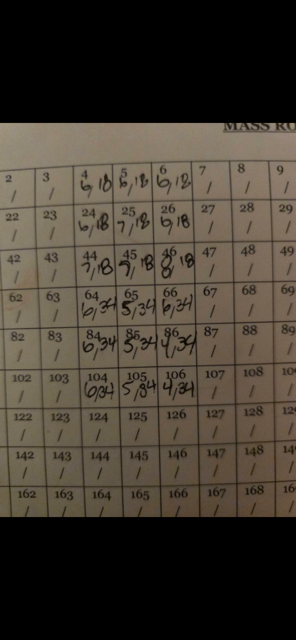 MASS RO
2 3 4 5 6 7 8 9
/ / 6,18 6,18 6,18 / / /
22 23 24 25 26 27 28 29
/ / 6,18 7,18 6,18 / / /
42 43 44 45 46 47 48 49
/ / 7,18 7,18 8,18 / / /
62 63 64 65 66 67 68 69
/ / 6,34 5,34 6,34 / / /
82 83 84 85 86 87 88 89
/ / 6,34 5,34 4,34 / / /
102 103 104 105 106 107 108
/ / 6,34 5,34 4,34 / / /
122 123 124 125 126 127 128
/ / / / / / / /
142 143 144 145 146 147 148
/ / / / / / / /
162 163 164 165 166 167 168
/ / / / / / /